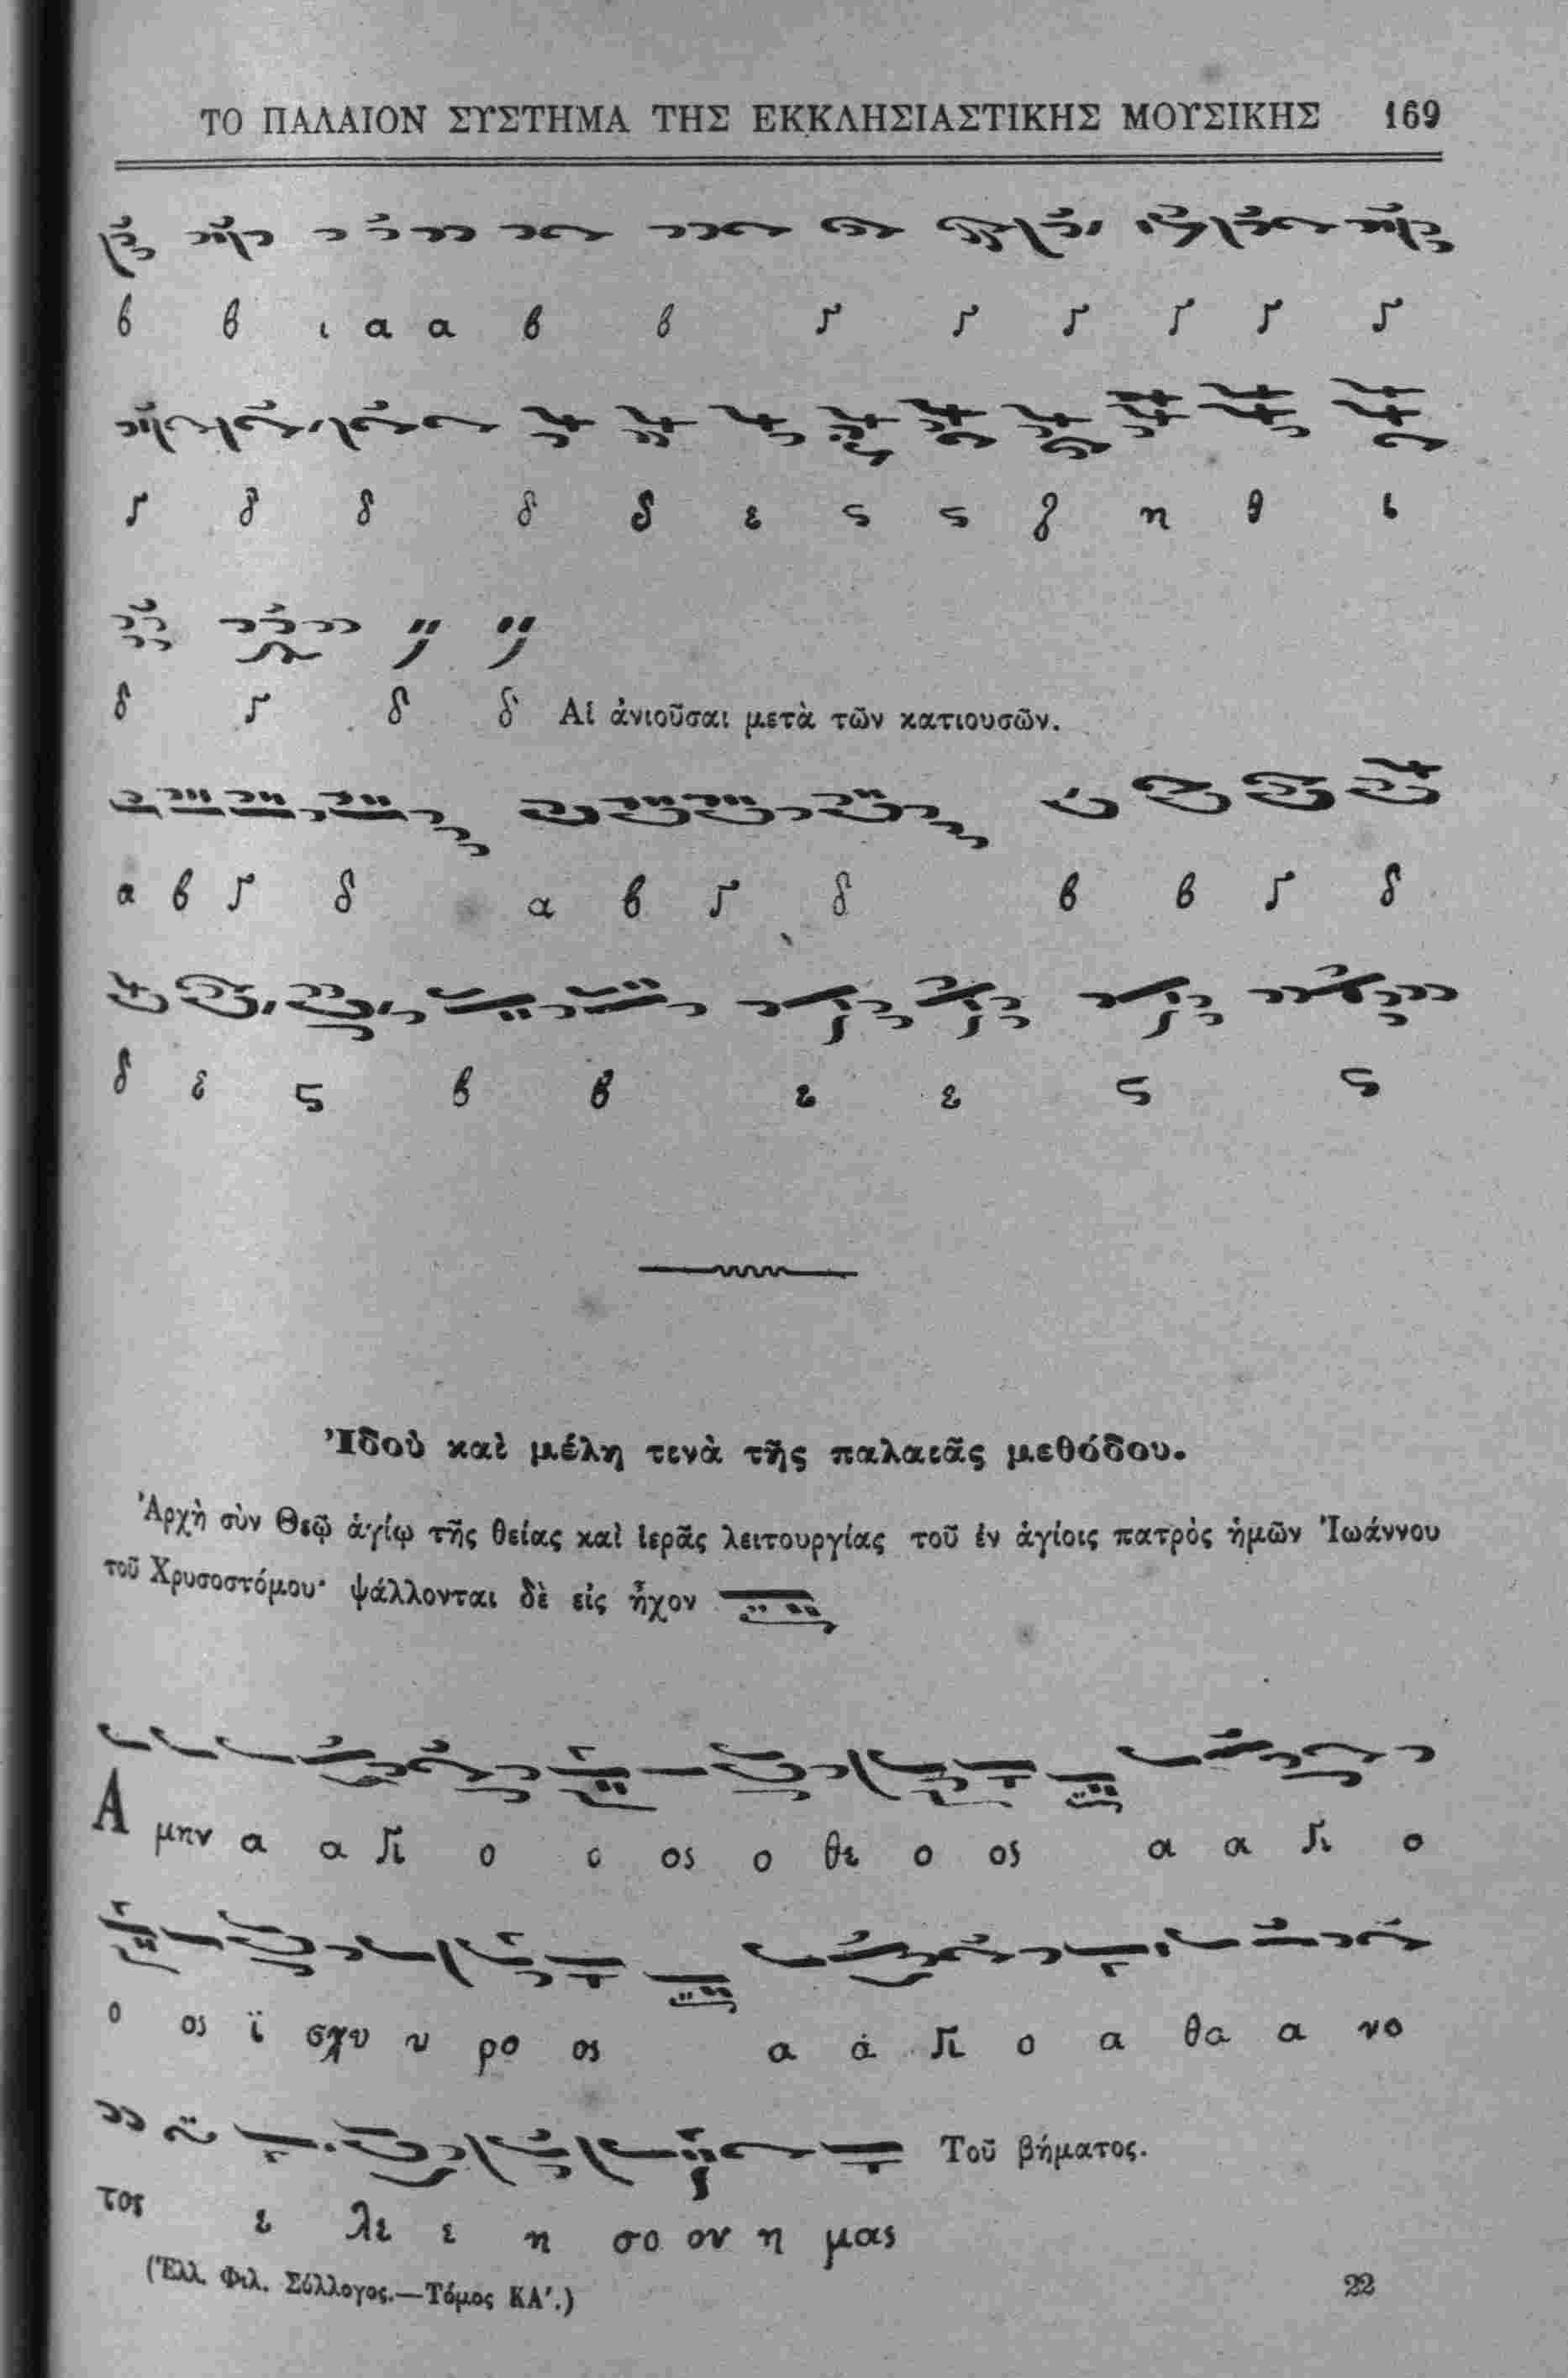 ΤΟ ΠΑΛΑΙΟΝ ΣΥΣΤΗΜΑ ΤΗΣ ΕΚΚΛΗΣΙΑΣΤΙΚΗΣ ΜΟΥΣΙΚΗΣ 169
β β ι α α β β γ γ γ γ γ γ
γ δ δ δ δ ε ς ς ζ η θ ι
δ γ δ δ Αἱ ἀνιοῦσαι μετὰ τῶν κατιουσῶν.
α β γ δ α β γ δ β β γ δ
δ ε ς β β ε ε ς ς
Ἰδοὺ καὶ μέλη τινὰ τῆς παλαιᾶς μεθόδου.
Ἀρχὴ σὺν Θεῷ ἁγίῳ τῆς θείας καὶ ἱερᾶς λειτουργίας τοῦ ἐν ἁγίοις πατρὸς ἡμῶν Ἰωάννου
τοῦ Χρυσοστόμου· ψάλλονται δὲ εἰς ἦχον
Α μην α α γι ο ο ος ο θε ο ος α α γι ο
ο ος ϊ σχυ υ ρο ος α ά γι ο α θα α νο
τος ε λε ε η σο ον η μας Τοῦ βήματος.
(Ἑλλ. Φιλ. Σύλλογος.—Τόμος ΚΑ΄.) 22